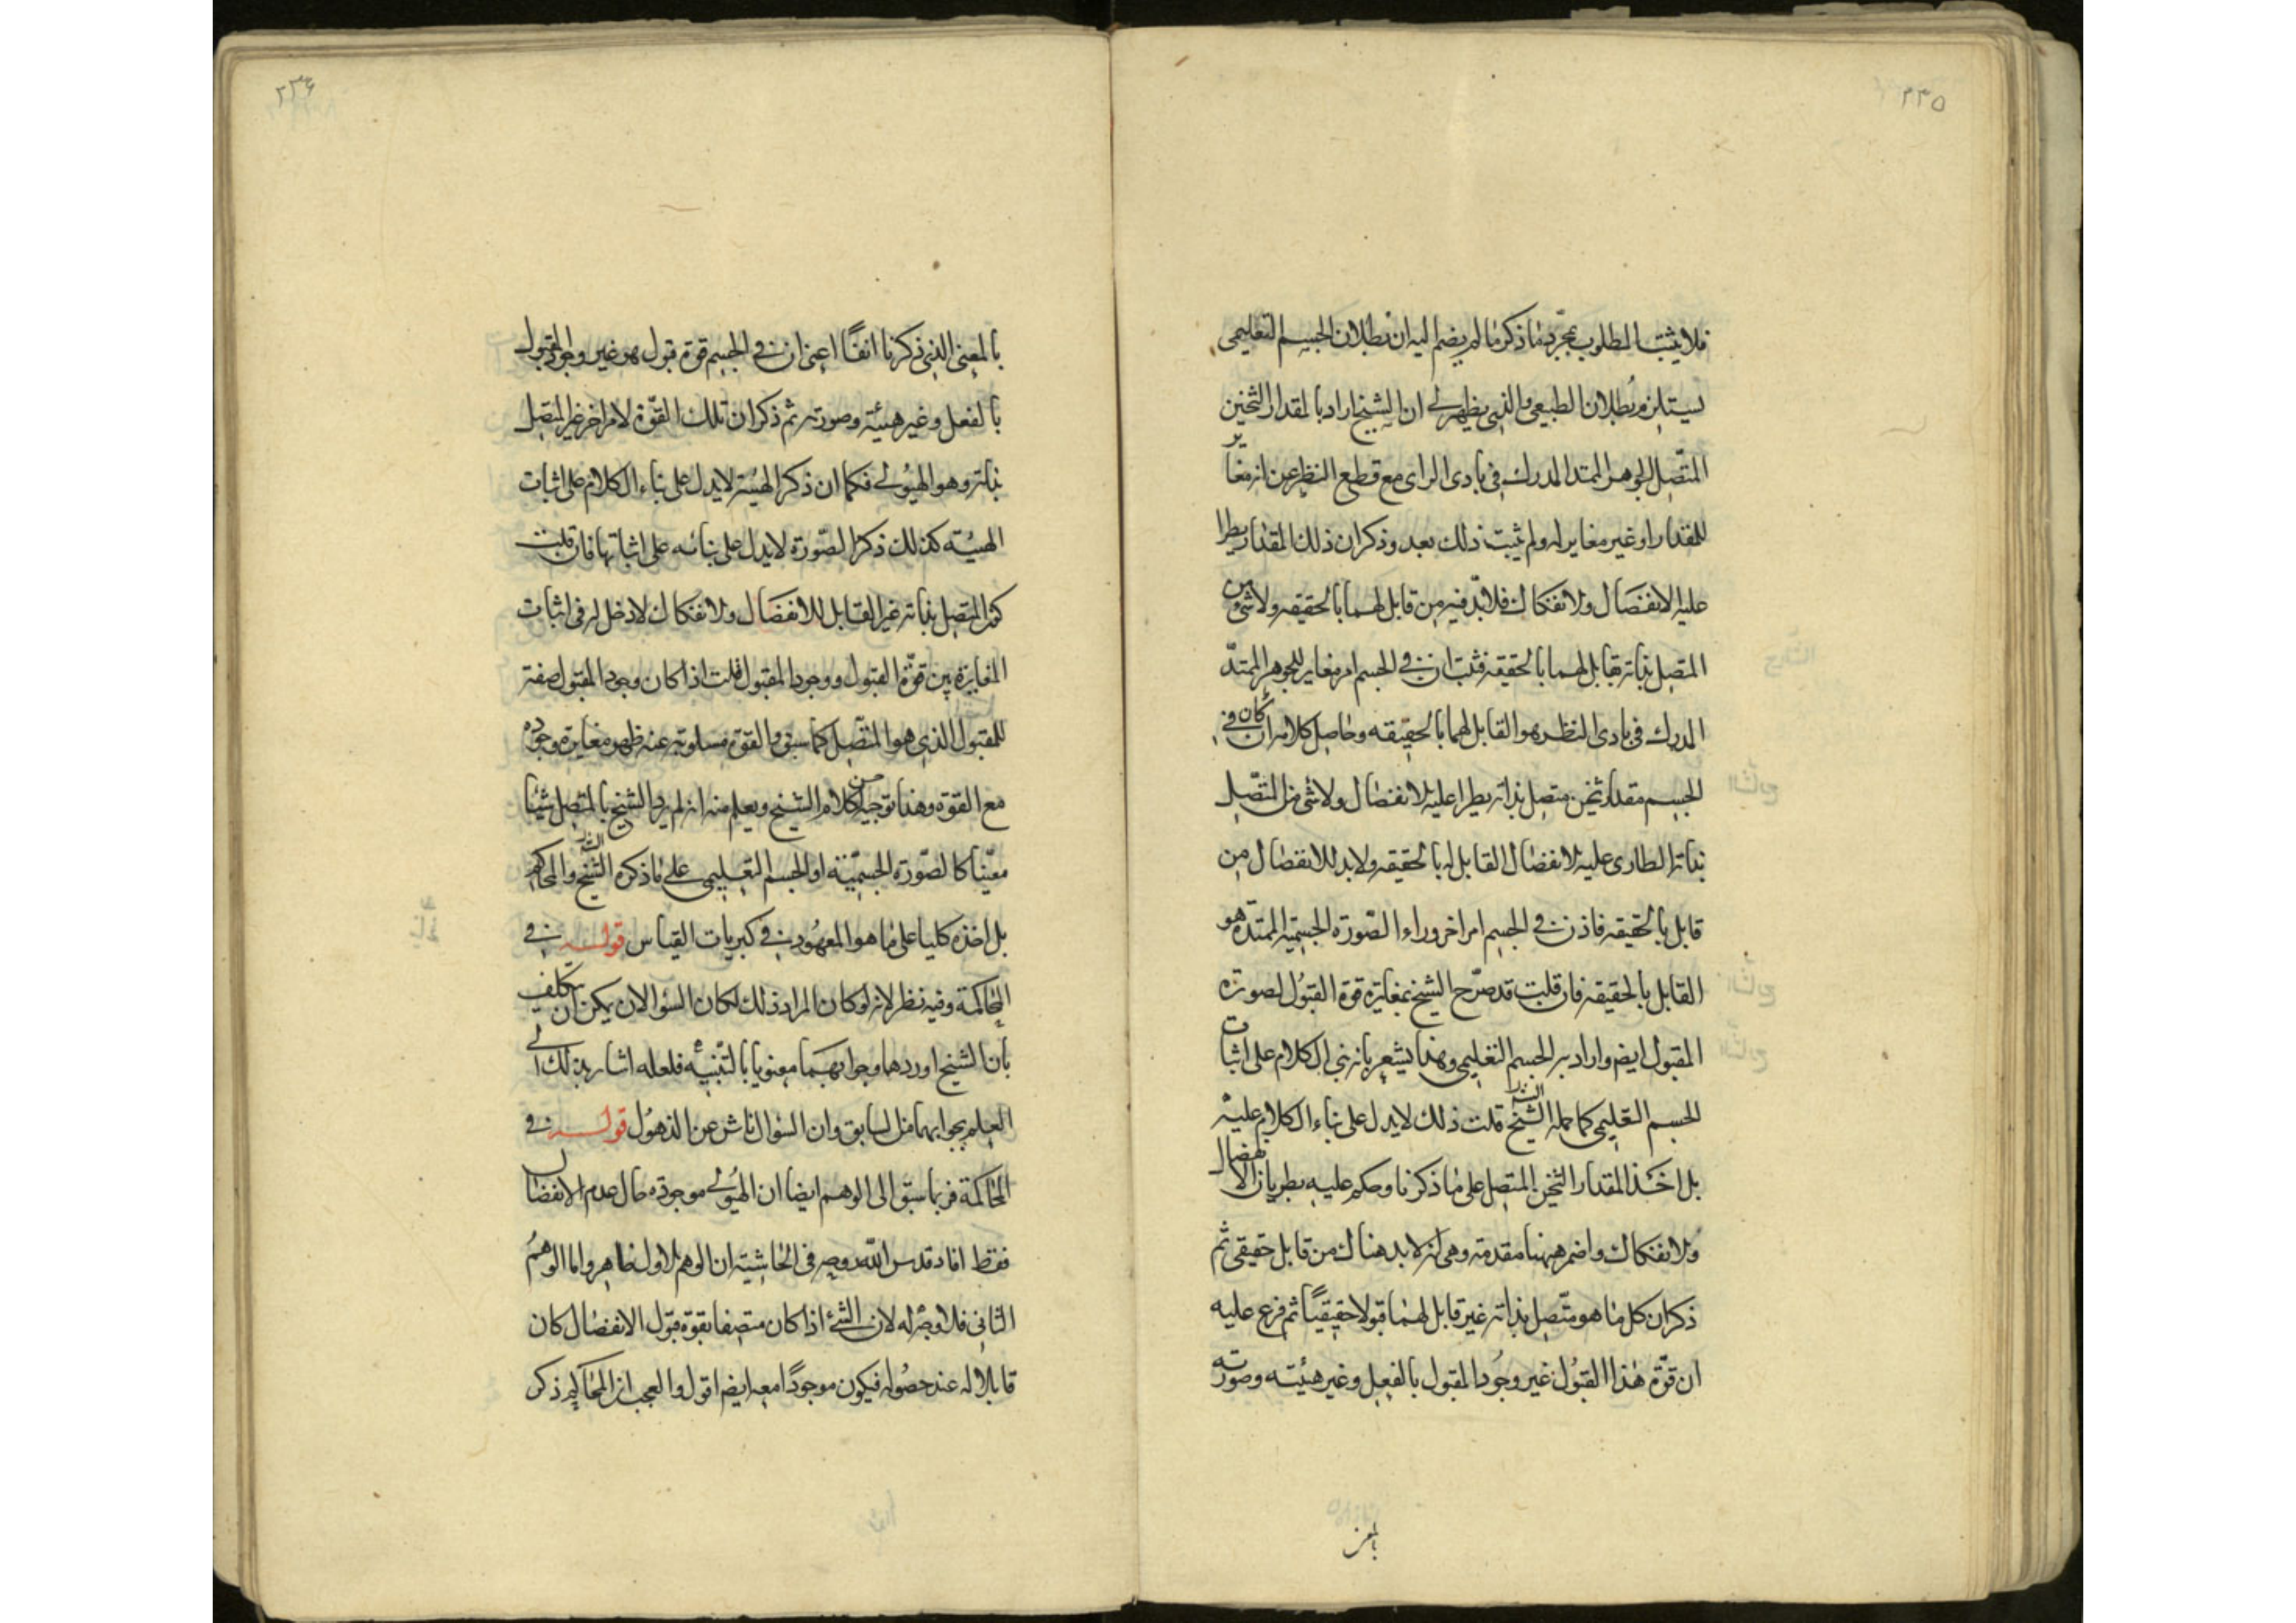 ٢٣٥
فلا يثبت المطلوب بمجرّد ما ذكر ما لم يضم اليه ان بطلان الجسم التعليمى
يستلزم بُطلان الطبيعى والذى يظهر لى ان الشيخ اراد بالمقدار الثخين
المتّصل الجوهر الممتد المدرك فى بادى الراى مع قطع النظر عن انه مغاير
للمقدار او غير مغاير له ولم يثبت ذلك بعد وذكر ان ذلك المقدار يطرا
عليه الانفصال والانفكاك فلابدّ فيه من قابل لهما بالحقيقه ولا شئ من
المتصل بذاته بقابل لهما بالحقيقه فثبت ان فى الجسم امر مغاير للجوهر الممتدّ
المدرك فى بادى النظر هو القابل لهما بالحقيقه وحاصل كلامه ان كان فى
الجسم مقدار ثخين متصل بذاته يطرا عليه الانفصال ولا شئ من المتّصل
بذاته الطارى عليه الانفصال القابل له بالحقيقه ولابد للانفصال من
قابل بالحقيقه فاذن فى الجسم امر اخر وراء الصّورة الجسميّه الممتدّه هو
القابل بالحقيقه فان قلت قد صرّح الشيخ بمغايرة قوة القبُول لصورة
المقبول ايضا واراد به الجسم التعليمى وهذا يشعر بانه بنى الكلام على اثبات
الجسم التعليمى كما حمله الشيخ الشارح قلت ذلك لا يدل على بناء الكلام عليه
بل اخذ المقدار الثخين المتصل على ما ذكرنا وحكم عليه بطريان الانفصال
والانفكاك واضمر ههنا مقدمة وهى انه لابد هناك من قابل حقيقى ثم
ذكر ان كل ما هو متّصل بذاته غير قابل لهما قبولا حقيقيّا ثم فرع عليه
ان قوّة هذا القبُول غير وجُود المقبول بالفعل وغير هيئته وصورته
بالمعنى
٢٣٦
بالمعنى الذى ذكرنا انفًا اعنى ان فى الجسم قوة قبول هو غير وجود المقبول
بالفعل وغير هيئته وصورته ثم ذكر ان تلك القوّة لامر اخر غير المتّصل
بذاته وهو الهيُولى فكما ان ذكر الهيئة لا يدل على بناء الكلام على اثبات
الهيئه كذلك ذكر الصّورة لا يدل على بنائه على اثباتها فان قلت
كون المتصل بذاته غير القابل للانفصال والانفكاك لا دخل له فى اثبات
المغايرة بين قوّة القبول ووجود المقبول قلت اذا كان وجود المقبول صفة
للمقبول الذى هو المتّصل كما سبق والقوة مسلوبة عنه ظهر مغايرة وجوده
مع القوة وهذا توجيه حسن لكلام الشيخ ويعلم منه انه لم يرد الشيخ بالمتصل شيئا
معيّنا كالصّورة الجسميّة او الجسم التعليمى على ما ذكره الشيخ الشارح والمحاكم
بل اخذه كليا على ما هو المعهُود فى كبريات القياس قوله فى
المحاكمة وفيه نظر لانه لو كان المراد ذلك لكان السؤالان يمكن ان يتكلف
بان الشيخ اوردهما وجوابهما معنويا بالتّنبيه فلعله اشار بذلك الى
العلم بجوابهما من السابق وان السؤال ناش عن الذهُول قوله فى
المحاكمة فربما سبق الى الوهم ايضا ان الهيُولى موجودة حال عدم الانفصال
فقط افاد قدس الله روحه فى الحاشية ان الوهم الاول ظاهر واما الوهم
الثانى فلا وجه له لان الشئ اذا كان متصفا بقوة قبول الانفصال كان
قابلا له عند حصوله فيكون موجودًا معه ايضا اقول والعجب ان المحاكم ذكر